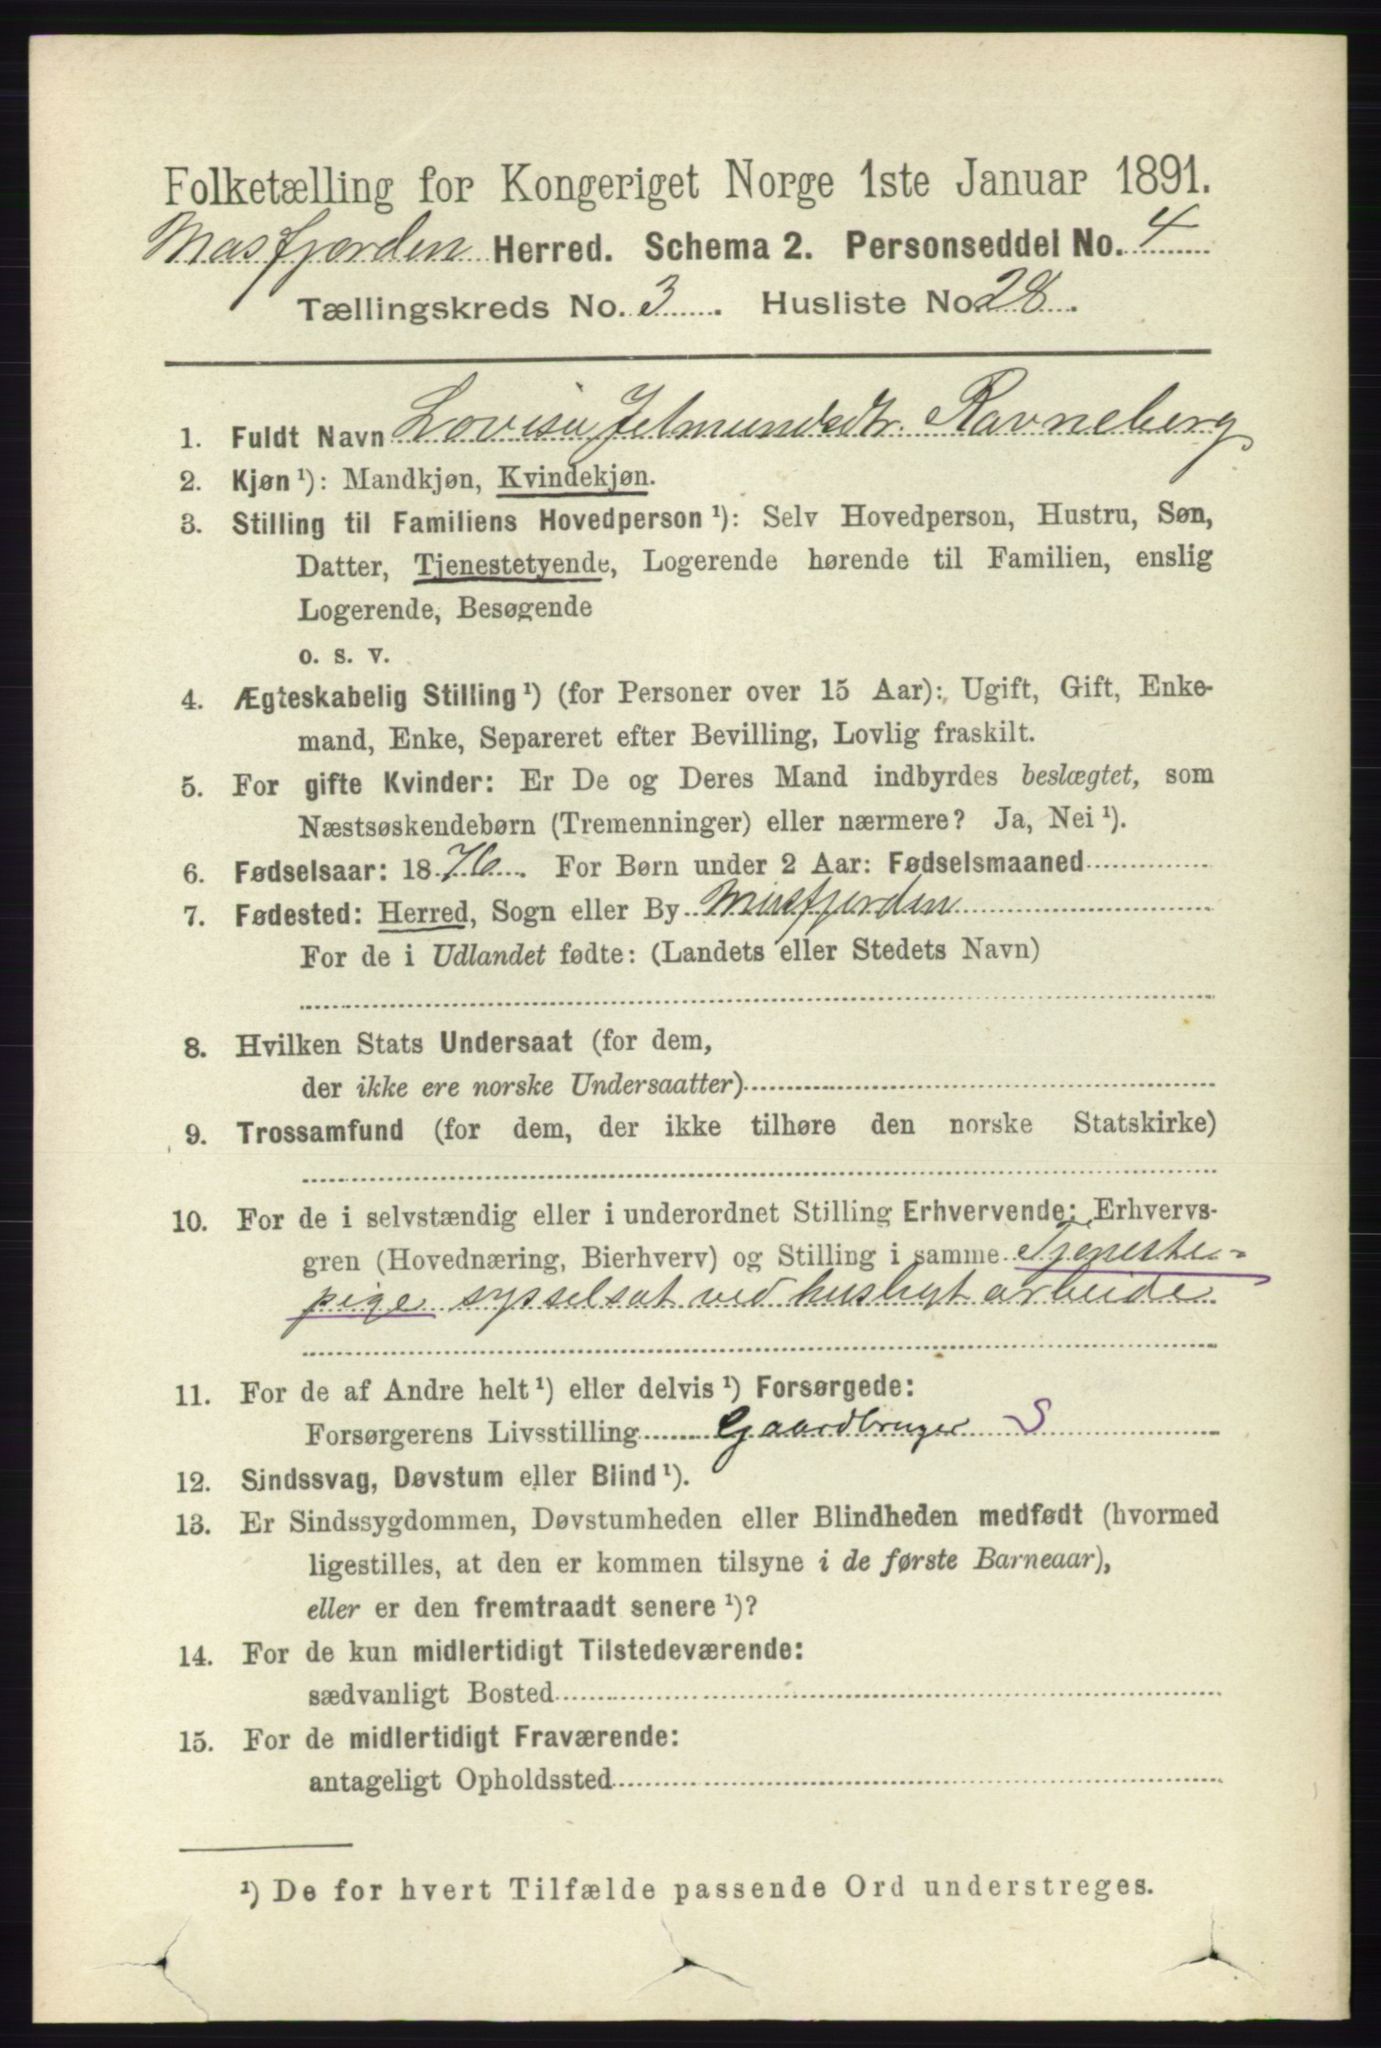 Folketælling for Kongeriget Norge 1ste Januar 1891.
Masfjorden Herred. Schema 2. Personseddel No. 4
Tællingskreds No. 3. Husliste No. 28.
1. Fuldt Navn Lovise Jetmundsdtr. Ravneberg
2. Kjøn ¹): Mandkjøn, Kvindekjøn.
3. Stilling til Familiens Hovedperson ¹): Selv Hovedperson, Hustru, Søn,
Datter, Tjenestetyende, Logerende hørende til Familien, enslig
Logerende, Besøgende
o. s. v.
4. Ægteskabelig Stilling ¹) (for Personer over 15 Aar): Ugift, Gift, Enke-
mand, Enke, Separeret efter Bevilling, Lovlig fraskilt.
5. For gifte Kvinder: Er De og Deres Mand indbyrdes beslægtet, som
Næstsøskendebørn (Tremenninger) eller nærmere? Ja, Nei ¹).
6. Fødselsaar: 1876. For Børn under 2 Aar: Fødselsmaaned
7. Fødested: Herred, Sogn eller By Masfjorden
For de i Udlandet fødte: (Landets eller Stedets Navn)
8. Hvilken Stats Undersaat (for dem,
der ikke ere norske Undersaatter)
9. Trossamfund (for dem, der ikke tilhøre den norske Statskirke)
10. For de i selvstændig eller i underordnet Stilling Erhvervende: Erhvervs-
gren (Hovednæring, Bierhverv) og Stilling i samme Tjeneste-
pige sysselsat ved husligt arbeide
11. For de af Andre helt ¹) eller delvis ¹) Forsørgede:
Forsørgerens Livsstilling Gaardbruger S
12. Sindssvag, Døvstum eller Blind ¹).
13. Er Sindssygdommen, Døvstumheden eller Blindheden medfødt (hvormed
ligestilles, at den er kommen tilsyne i de første Barneaar),
eller er den fremtraadt senere ¹)?
14. For de kun midlertidigt Tilstedeværende:
sædvanligt Bosted
15. For de midlertidigt Fraværende:
antageligt Opholdssted
¹) De for hvert Tilfælde passende Ord understreges.